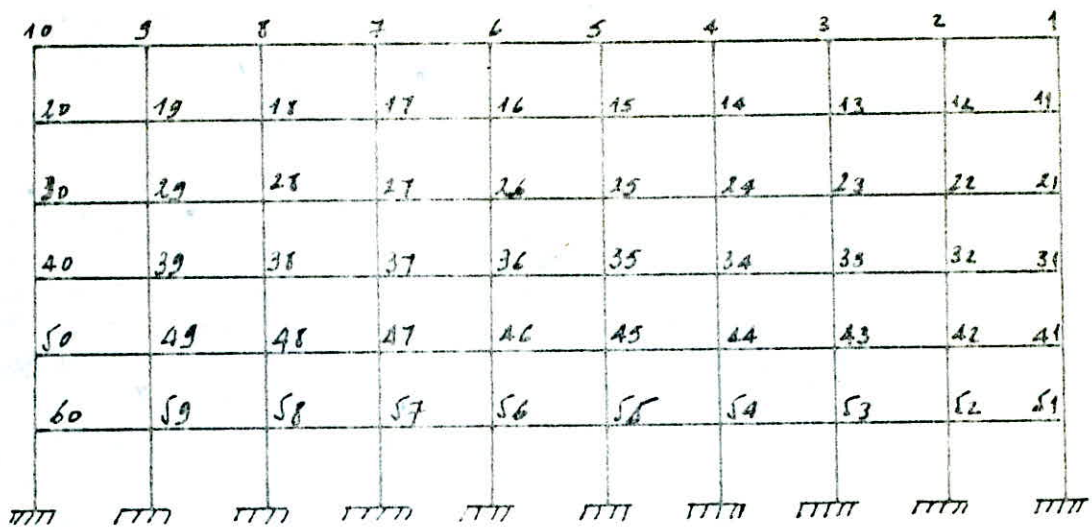 10 9 8 7 6 5 4 3 2 1
20 19 18 17 16 15 14 13 12 11
30 29 28 27 26 25 24 23 22 21
40 39 38 37 36 35 34 33 32 31
50 49 48 47 46 45 44 43 42 41
60 59 58 57 56 55 54 53 52 51